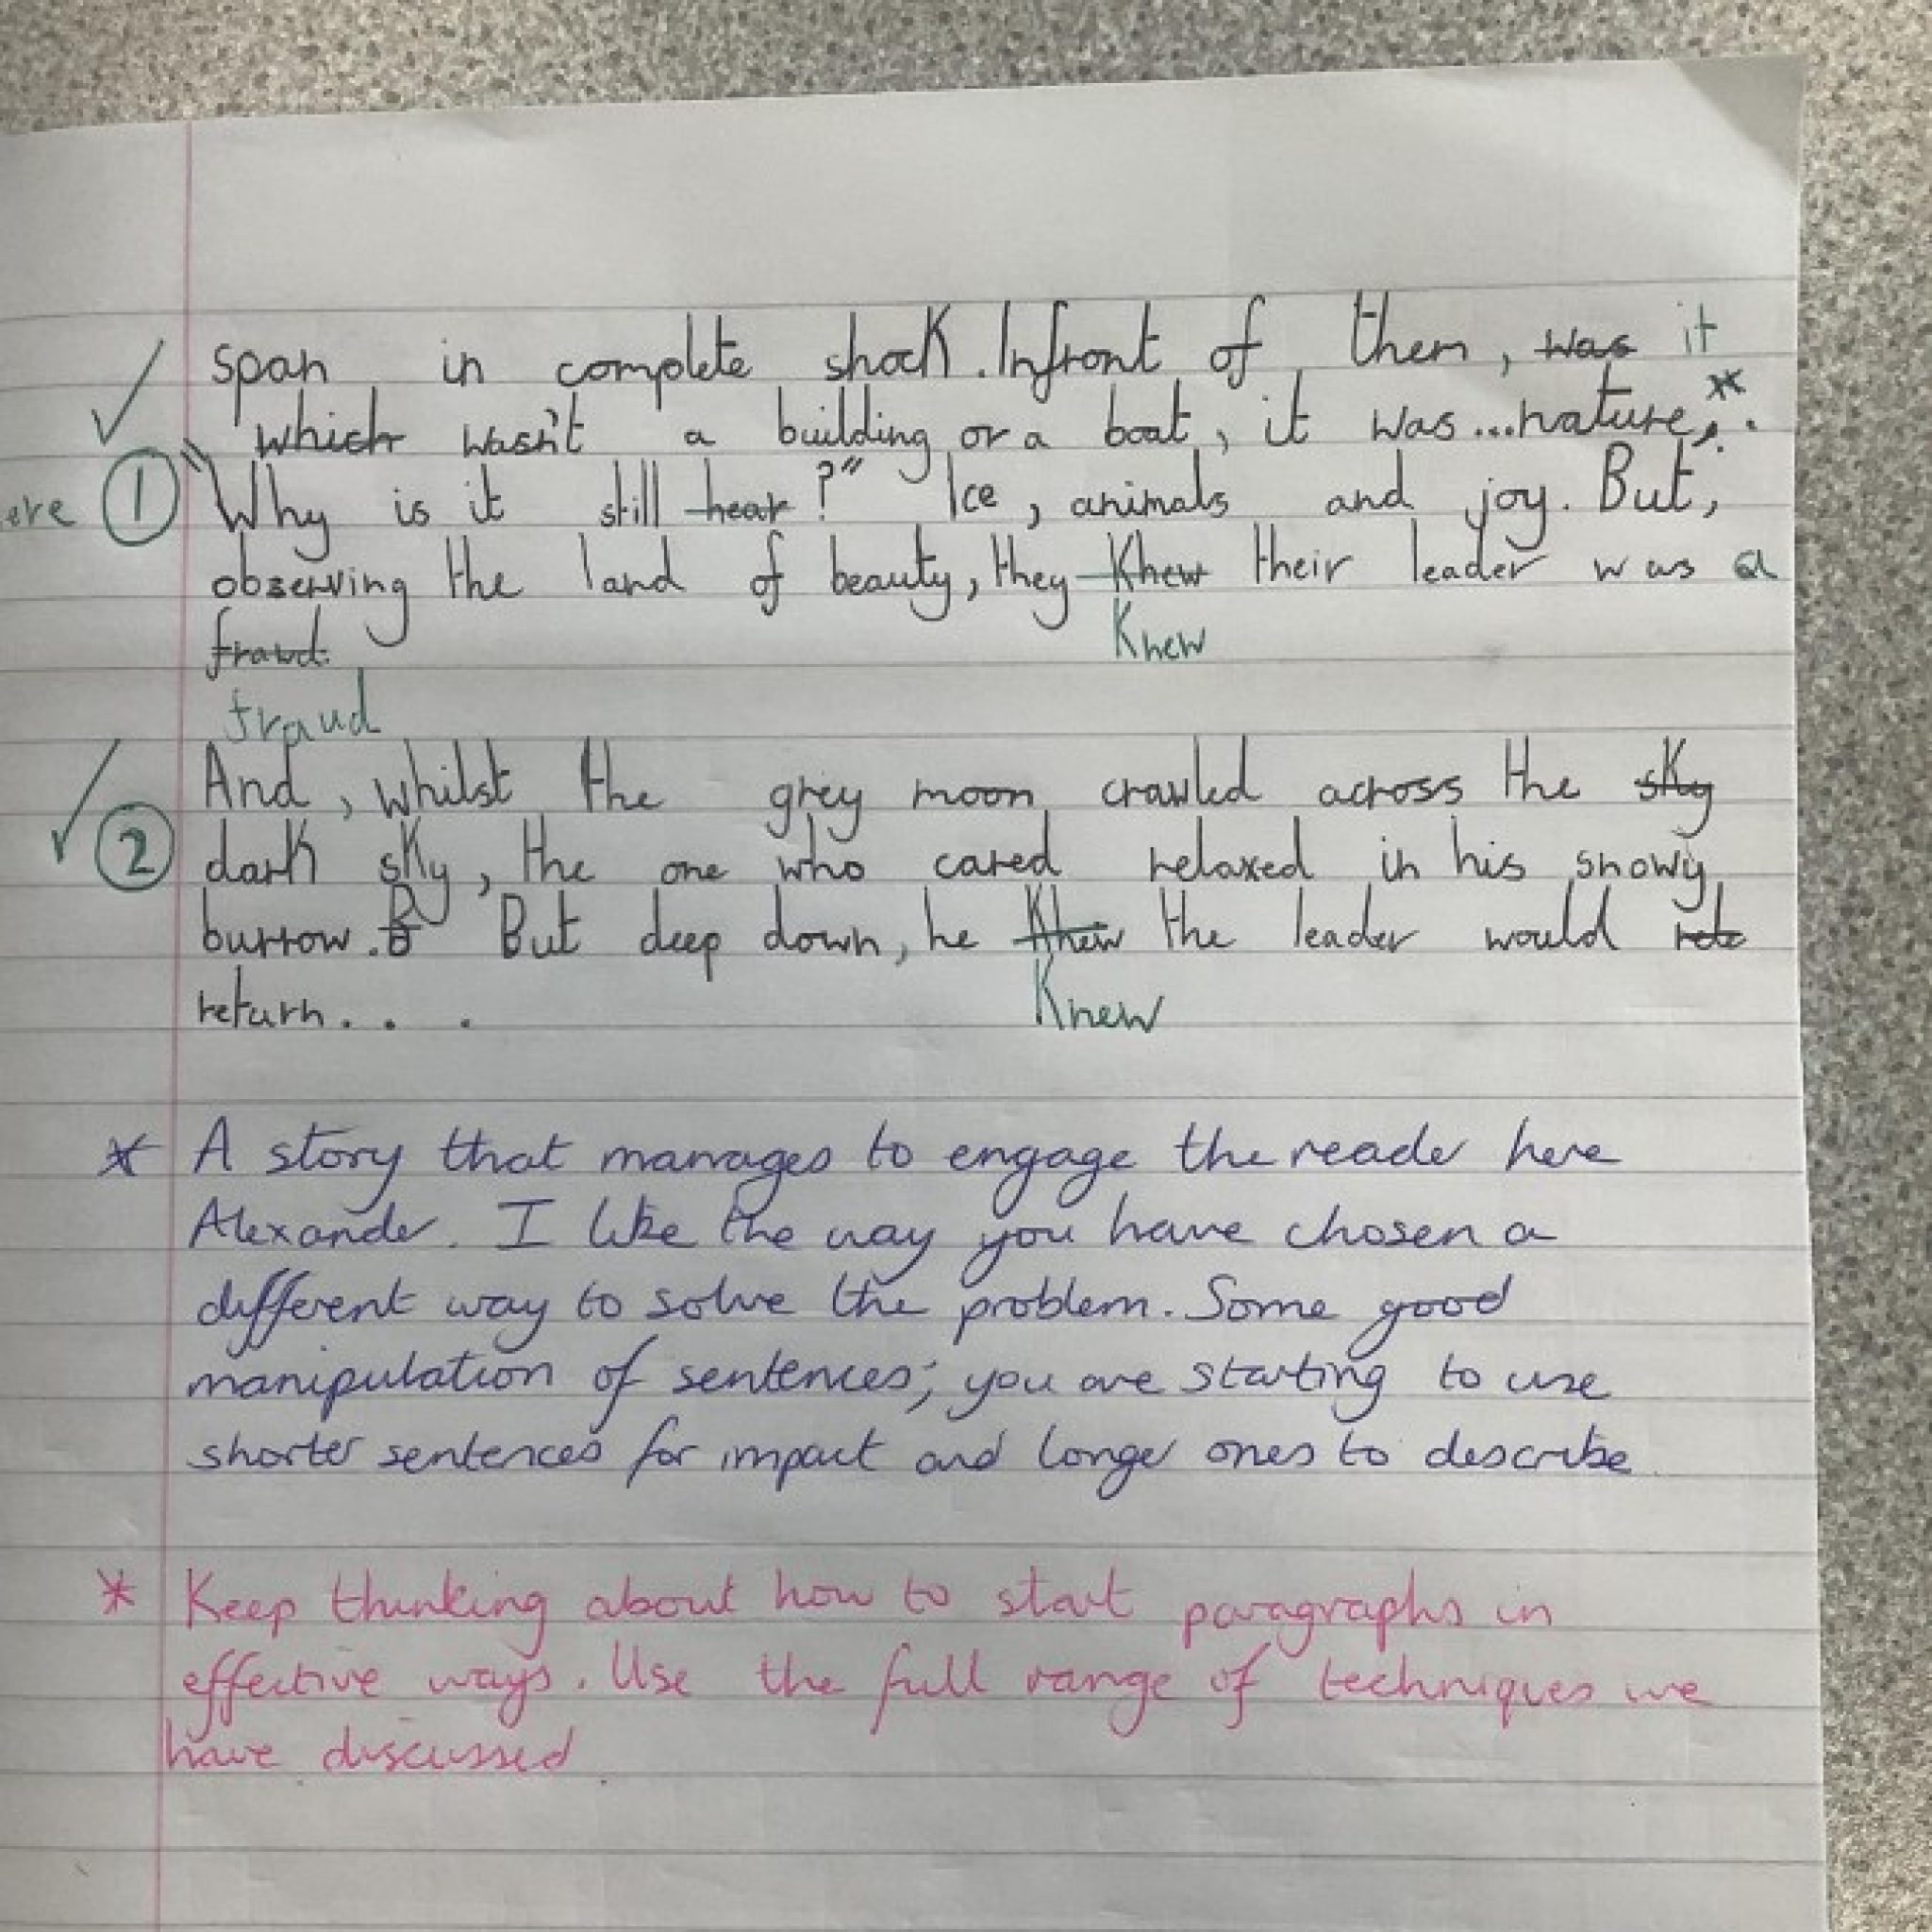 span in complete shock. Infront of them, was it
which wasn't a building or a boat, it was...nature,*.
ere 1 "Why is it still hear?" Ice, animals and joy. But,
observing the land of beauty, they Khew their leader was a
frawd. Knew
fraud
And, whilst the grey moon crawled across the sky
2 dark sky, the one who cared relaxed in his snowy
burrow. B But deep down, he Khew the leader would rete
return... Knew
* A story that manages to engage the reader here
Alexander. I like the way you have chosen a
different way to solve the problem. Some good
manipulation of sentences; you are starting to use
shorter sentences for impact and longer ones to describe.
* Keep thinking about how to start paragraphs in
effective ways. Use the full range of techniques we
have discussed.